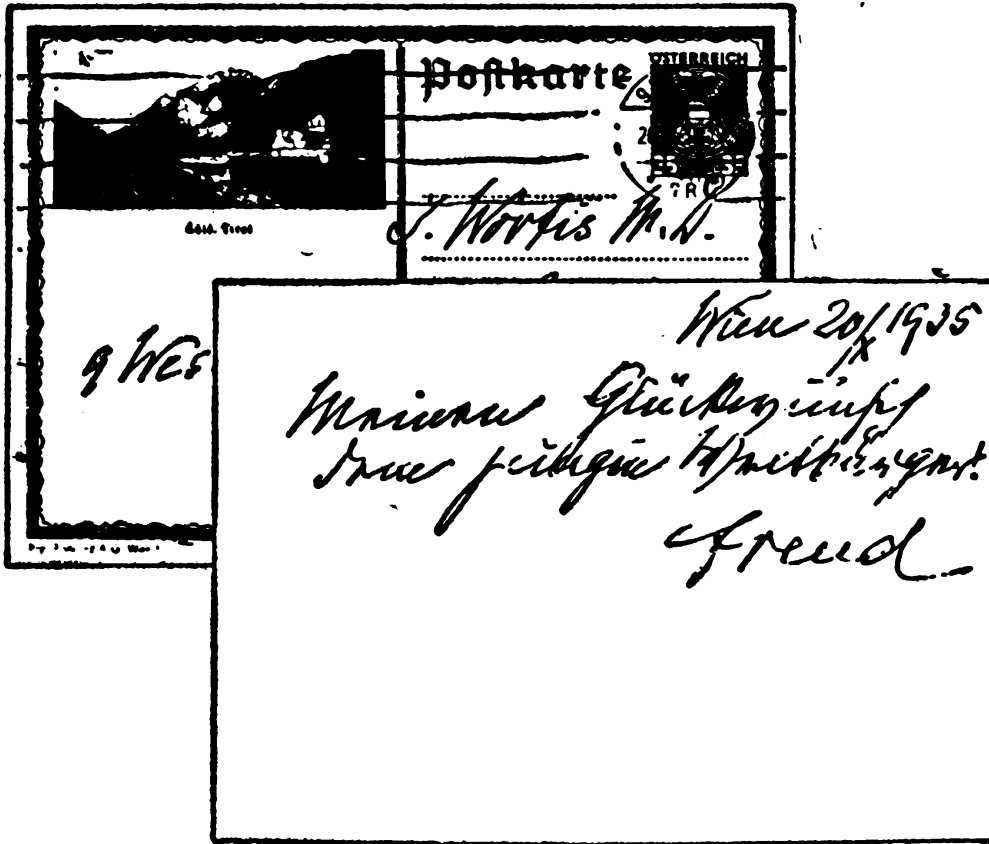 Postkarte
ÖSTERREICH
J. Wortis M.D.
9 Wes
Wien 20/IX 1935
Meinen Glückwunsch
dem jungen Weltbürger!
Freud